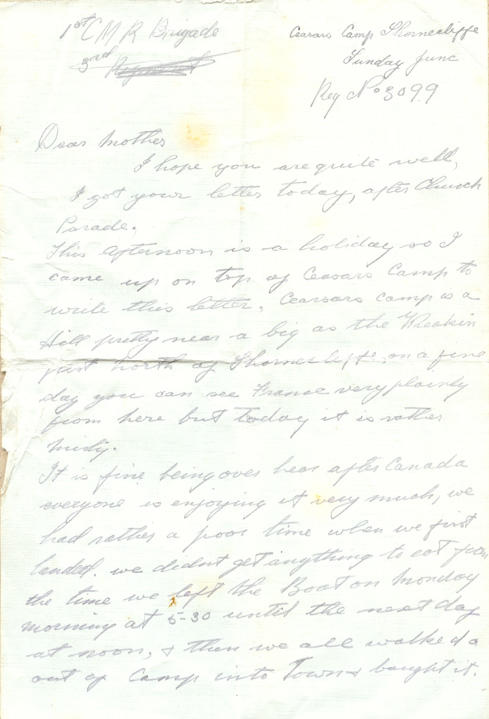 1st C M R Brigade
3rd Regiment
Ceasars Camp Shorncliffe
Sunday June
Reg No 3099
Dear Mother
I hope you are quite well,
I got your letter today, after Church
Parade.
This afternoon is a holiday so I
came up on top of Ceasars Camp to
write this letter. Cearsars camp is a
Hill pretty near a big as the Wreakin
just north of Shorncliffe, on a fine
day you can see France very plainly
from here but today it is rather
misty.
It is fine being over hear after Canada
everyone is enjoying it very much, we
had rather a poor time when we first
landed. we didnt get anything to eat from
the time we left the Boat on Monday
morning at 5-30 until the next day
at noon, & then we all walked
out of Camp into Town & bought it.